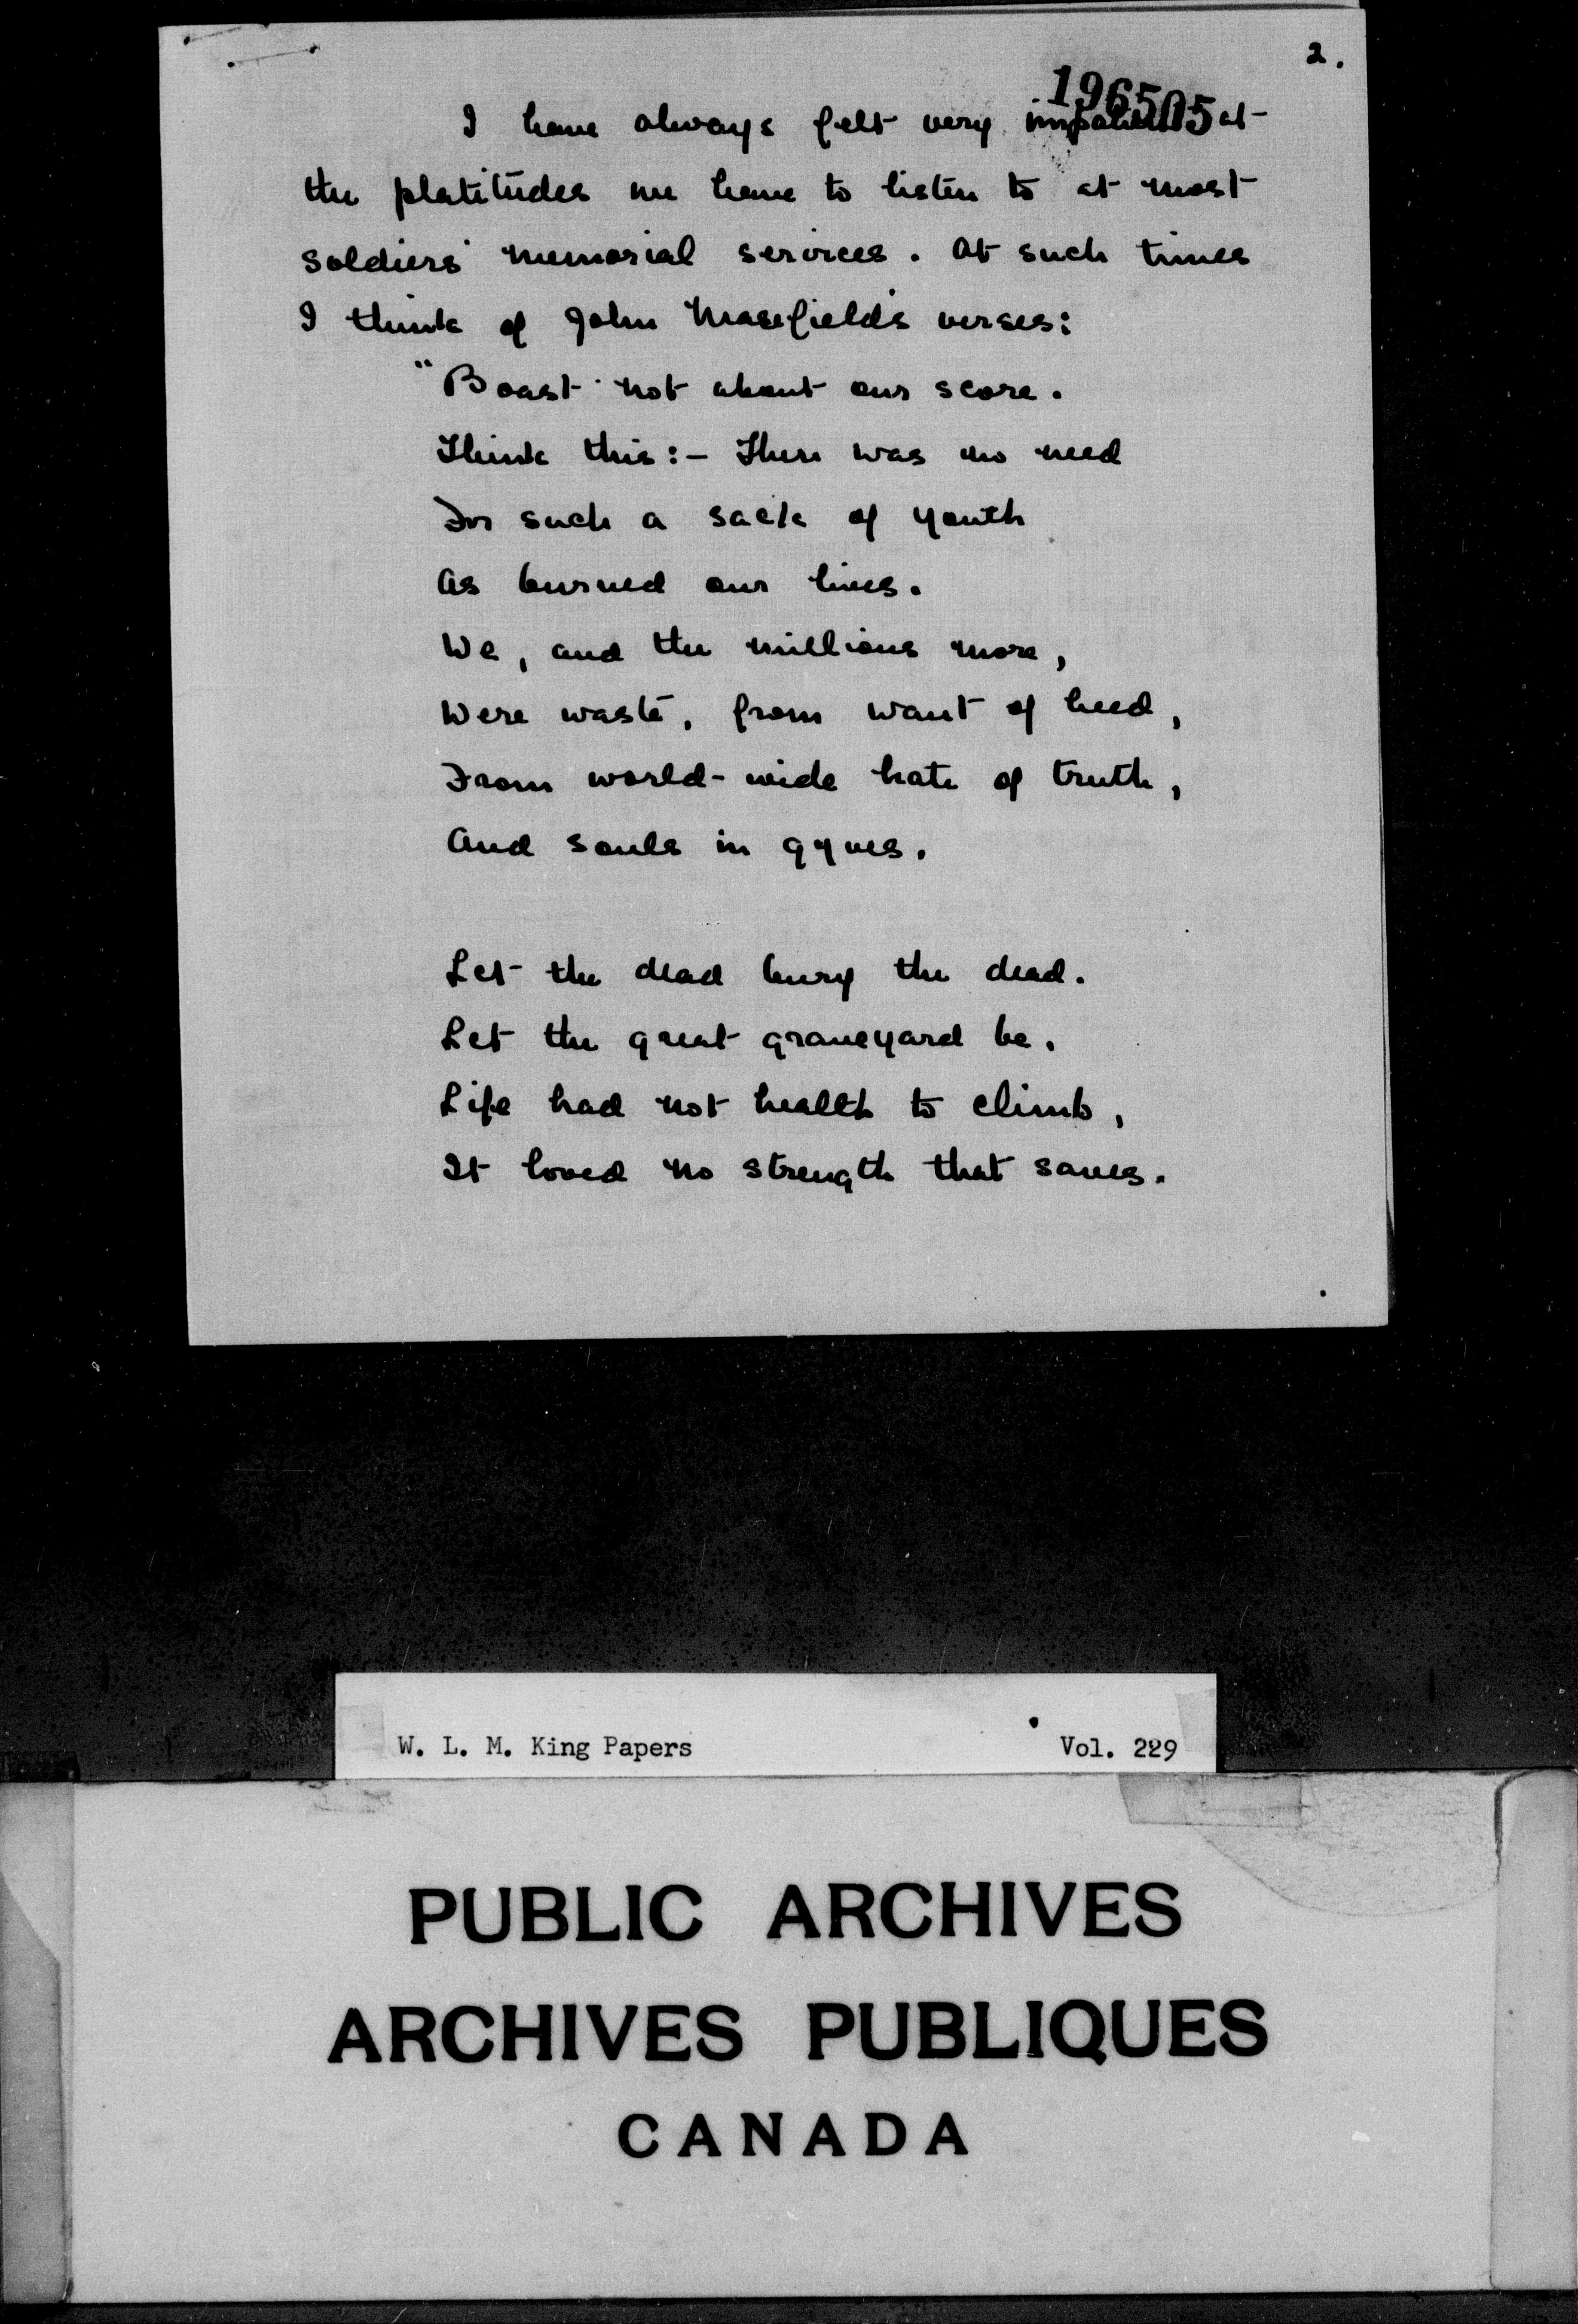 2.
196505
I have always felt very impatient at
the platitudes we have to listen to at most
soldiers' memorial services. At such times
I think of John Masefield's verses:
"Boast not about our score.
Think this:- There was no need
For such a sack of youth
As burned our lives.
We, and the millions more,
Were waste, from want of heed,
From world-wide hate of truth,
And souls in gyves.
Let the dead bury the dead.
Let the great graveyard be.
Life had not health to climb,
It loved no strength that saves.
W. L. M. King Papers Vol. 229
PUBLIC ARCHIVES
ARCHIVES PUBLIQUES
CANADA